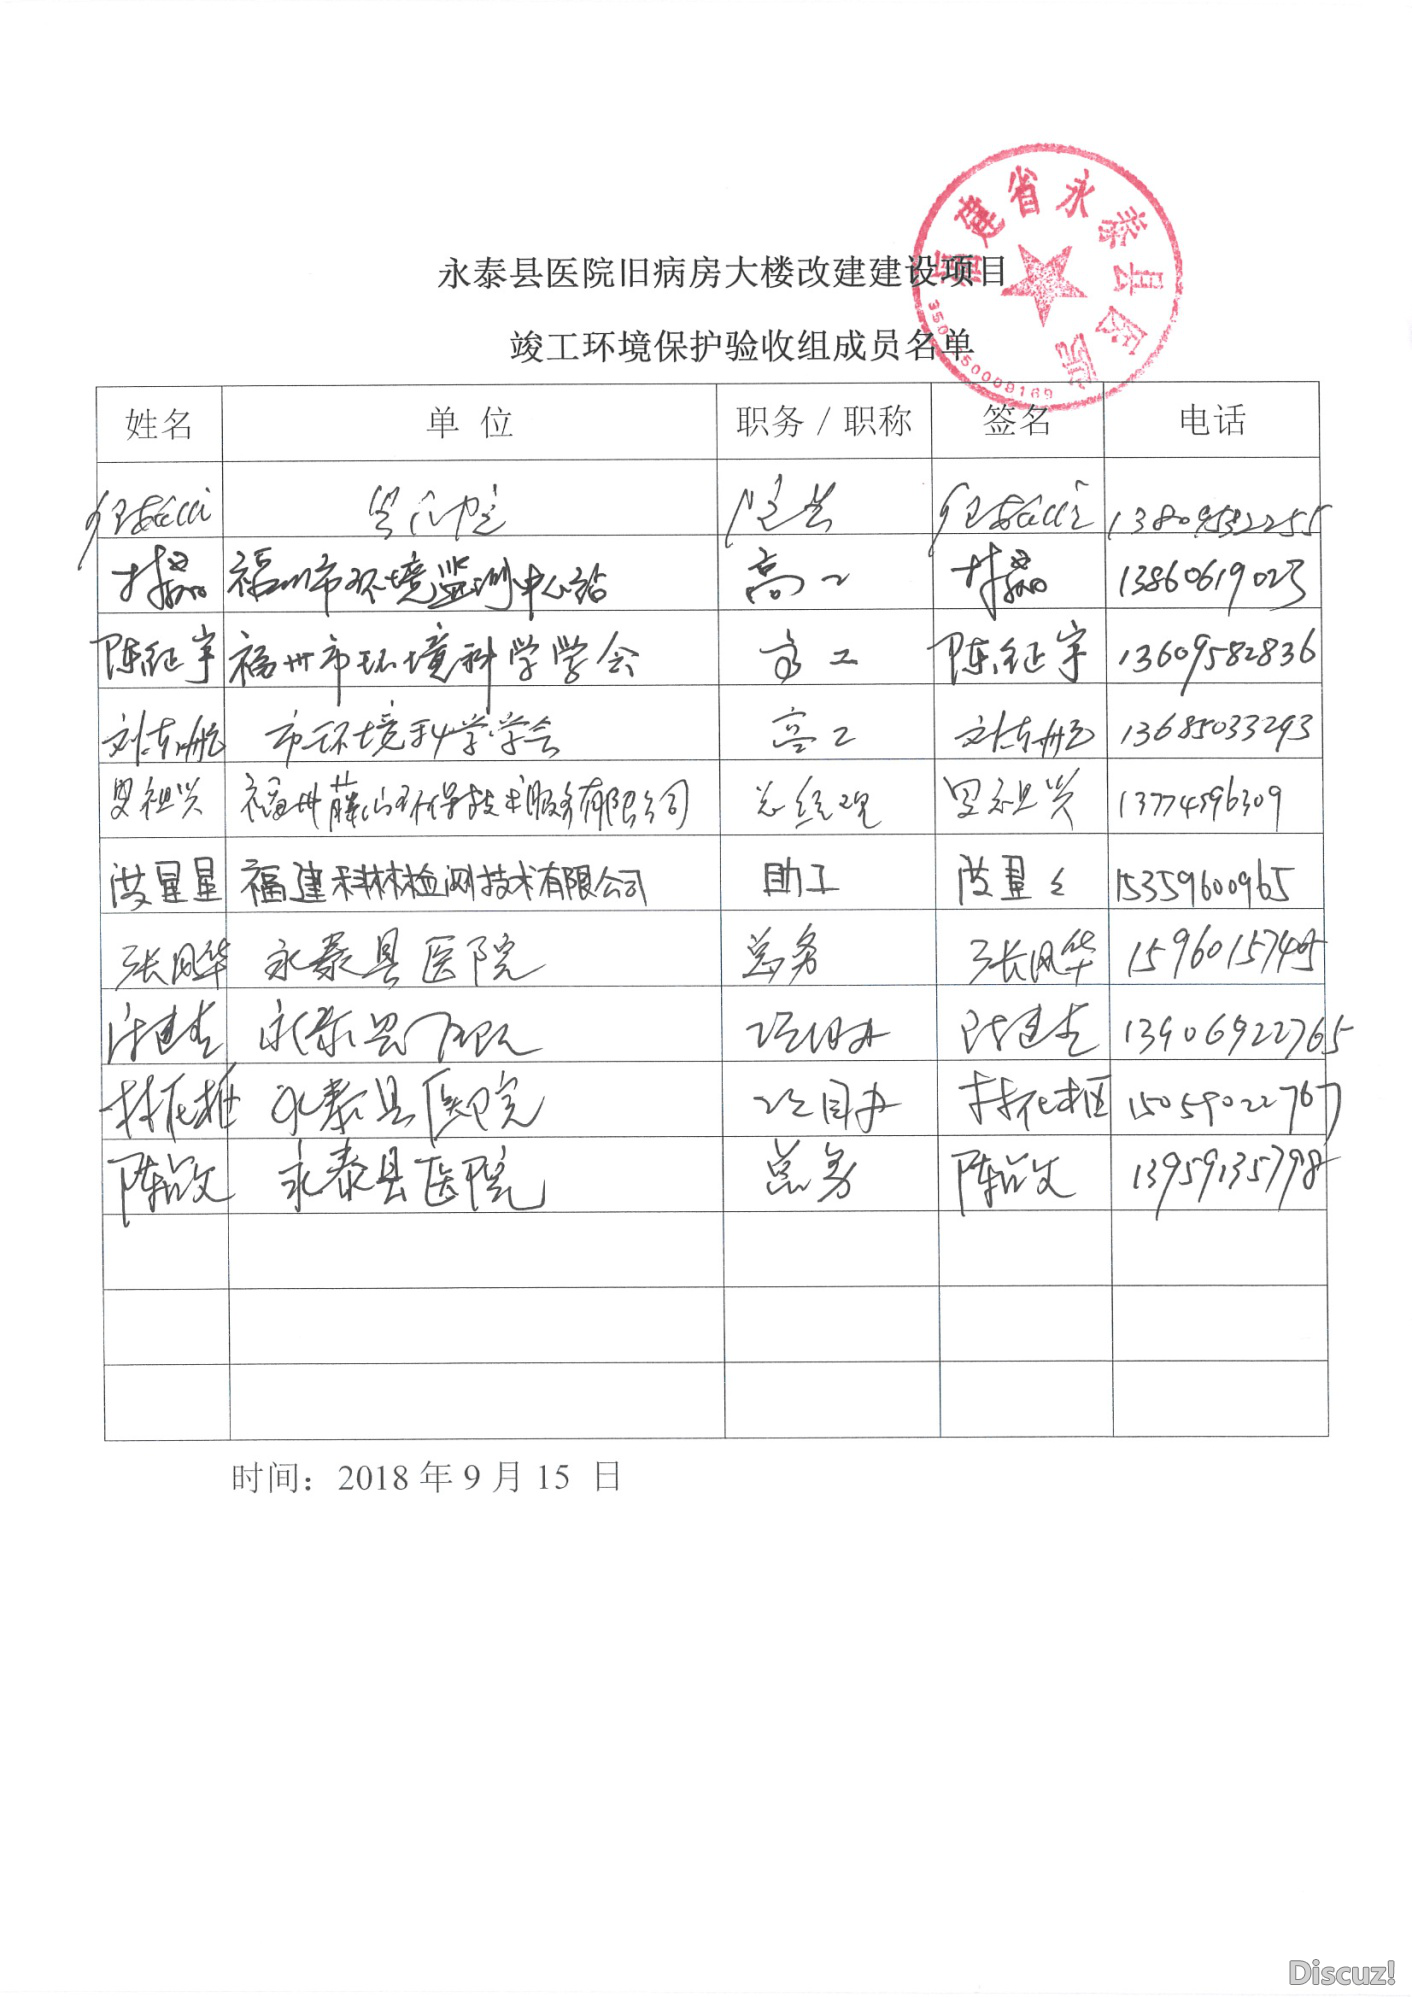 福建省永泰县医院
永泰县医院旧病房大楼改建建设项目
竣工环境保护验收组成员名单
姓名 单 位 职务 / 职称 签名 电话
县医院 13809532255
林 福州市环境监测中心站 高工 林 13860619023
陈征宇 福州市环境科学学会 高工 陈征宇 13609582836
刘东航 市环境科学学会 高工 刘东航 13685033293
祖兴 福州藤山环保技术服务有限公司 总经理 祖兴 13774596309
星星 福建科林检测技术有限公司 助工 15359600965
张凤华 永泰县医院 总务 张凤华 15960157405
建 永泰县医院 项目办 陈建 13906922765
林 永泰县医院 项目办 林 15059022767
陈韶文 永泰县医院 总务 陈韶文 13959135798
时间：2018 年 9 月 15 日
Discuz!